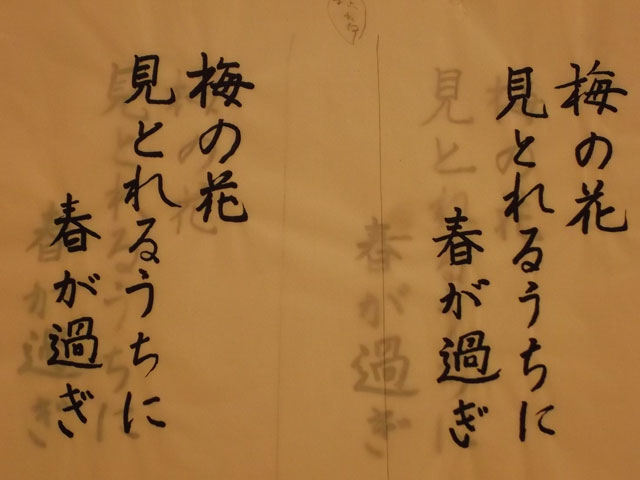 梅の花
見とれるうちに
春が過ぎ
梅の花
見とれるうちに
春が過ぎ